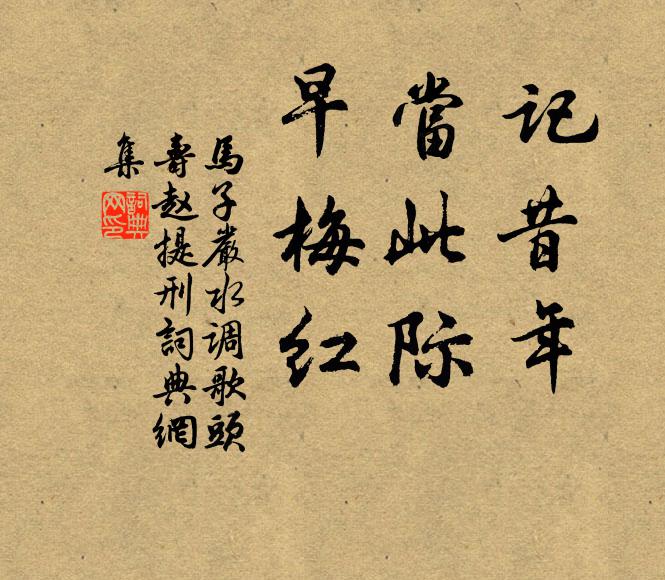 记昔年
當此际
早梅红
馬子嚴水调歌頭
壽赵提刑詞典網
集
詞典網印